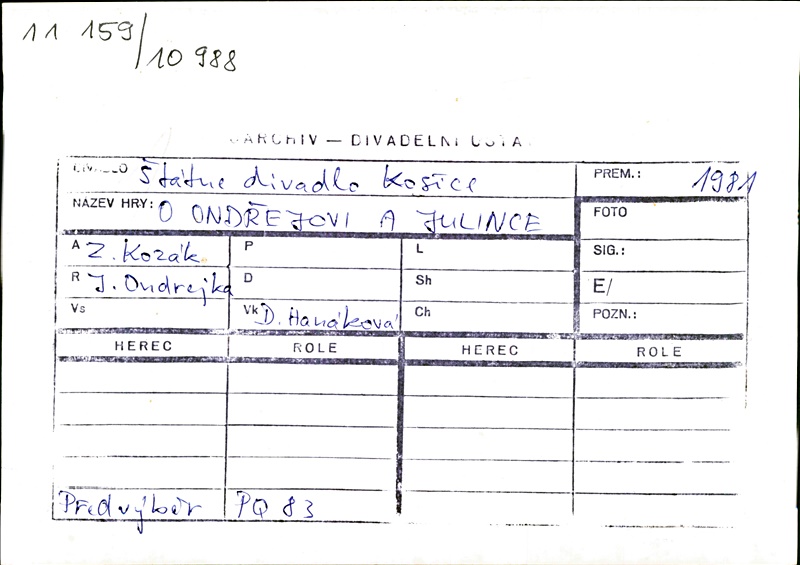 11 159/10 988
ARCHIV — DIVADELNÍ ÚSTA
DIVADLO Štátne divadlo Košice PREM.: 1981
NÁZEV HRY: O ONDŘEJOVI A JULINCE FOTO
A Z. Kozák P L SIG.:
R J. Ondrejka D Sh E/
Vs Vk D. Hanáková Ch POZN.:
HEREC ROLE HEREC ROLE
Předvýběr PQ 83